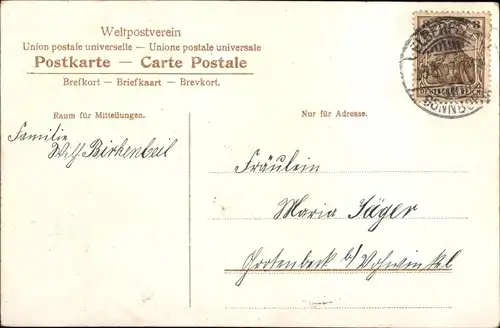 Weltpostverein
Union postale universelle — Unione postale universale
Postkarte — Carte Postale
Brefkort — Briefkaart — Brevkort.
Raum für Mitteilungen.
Nur für Adresse.
Familie
Wilh. Birkenbeil
Fräulein
Maria Jäger
Grotenbeck b/ Vohwinkel
DEUTSCHES REICH